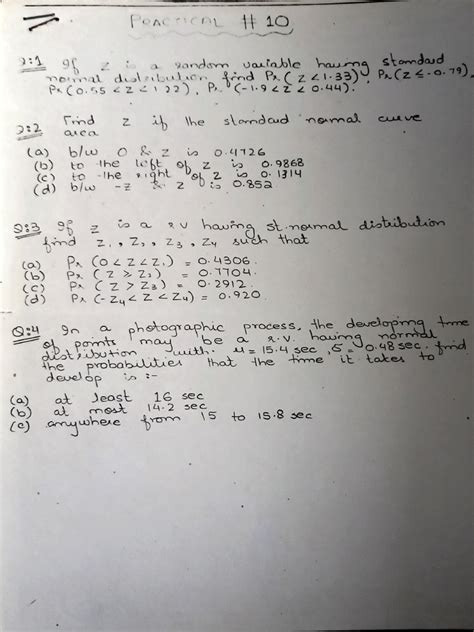 PRACTICAL # 10
Q:1 If z is a random variable having standard
normal distribution find Pr(z<1.33), Pr(z≤-0.79),
Pr(0.55<z<1.22), Pr(-1.9<z<0.44).
Q:2 Find z if the standard normal curve
area
(a) b/w 0 & z is 0.4726
(b) to the left of z is 0.9868
(c) to the right of z is 0.1314
(d) b/w -z & z is 0.852
Q:3 If z is a r.v having st.normal distribution
find z₁, z₂, z₃, z₄ such that
(a) Pr(0<z<z₁) = 0.4306.
(b) Pr(z>z₂) = 0.7704.
(c) Pr(z>z₃) = 0.2912.
(d) Pr(-z₄<z<z₄) = 0.920.
Q:4 In a photographic process, the developing time
of points may be a r.v. having normal
distribution with. μ=15.4 sec, σ=0.48 sec. find
the probabilities that the time it takes to
develop is :-
(a) at least 16 sec
(b) at most 14.2 sec
(c) anywhere from 15 to 15.8 sec